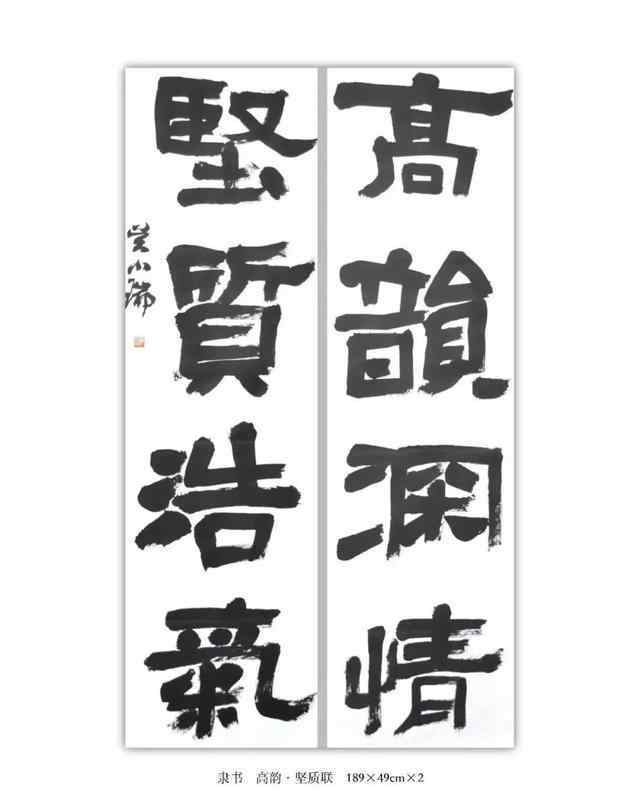 高韻深情
堅質浩氣
小瑞
隶书　高韵·坚质联　189×49cm×2